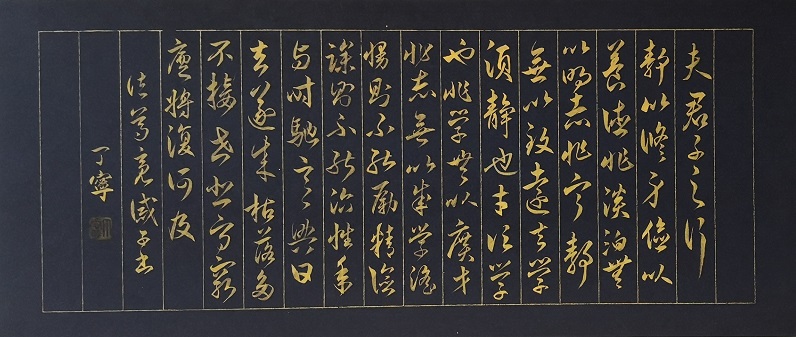 夫君子之行
靜以修身儉以
養德非淡泊無
以明志非寧靜
無以致遠夫學
須靜也才須學
也非學無以廣才
非志無以成學淫
慢則不能勵精險
躁則不能治性年
与时馳意與日
去遂成枯落多
不接世悲守窮
廬將復何及
诸葛亮诫子书
丁寧